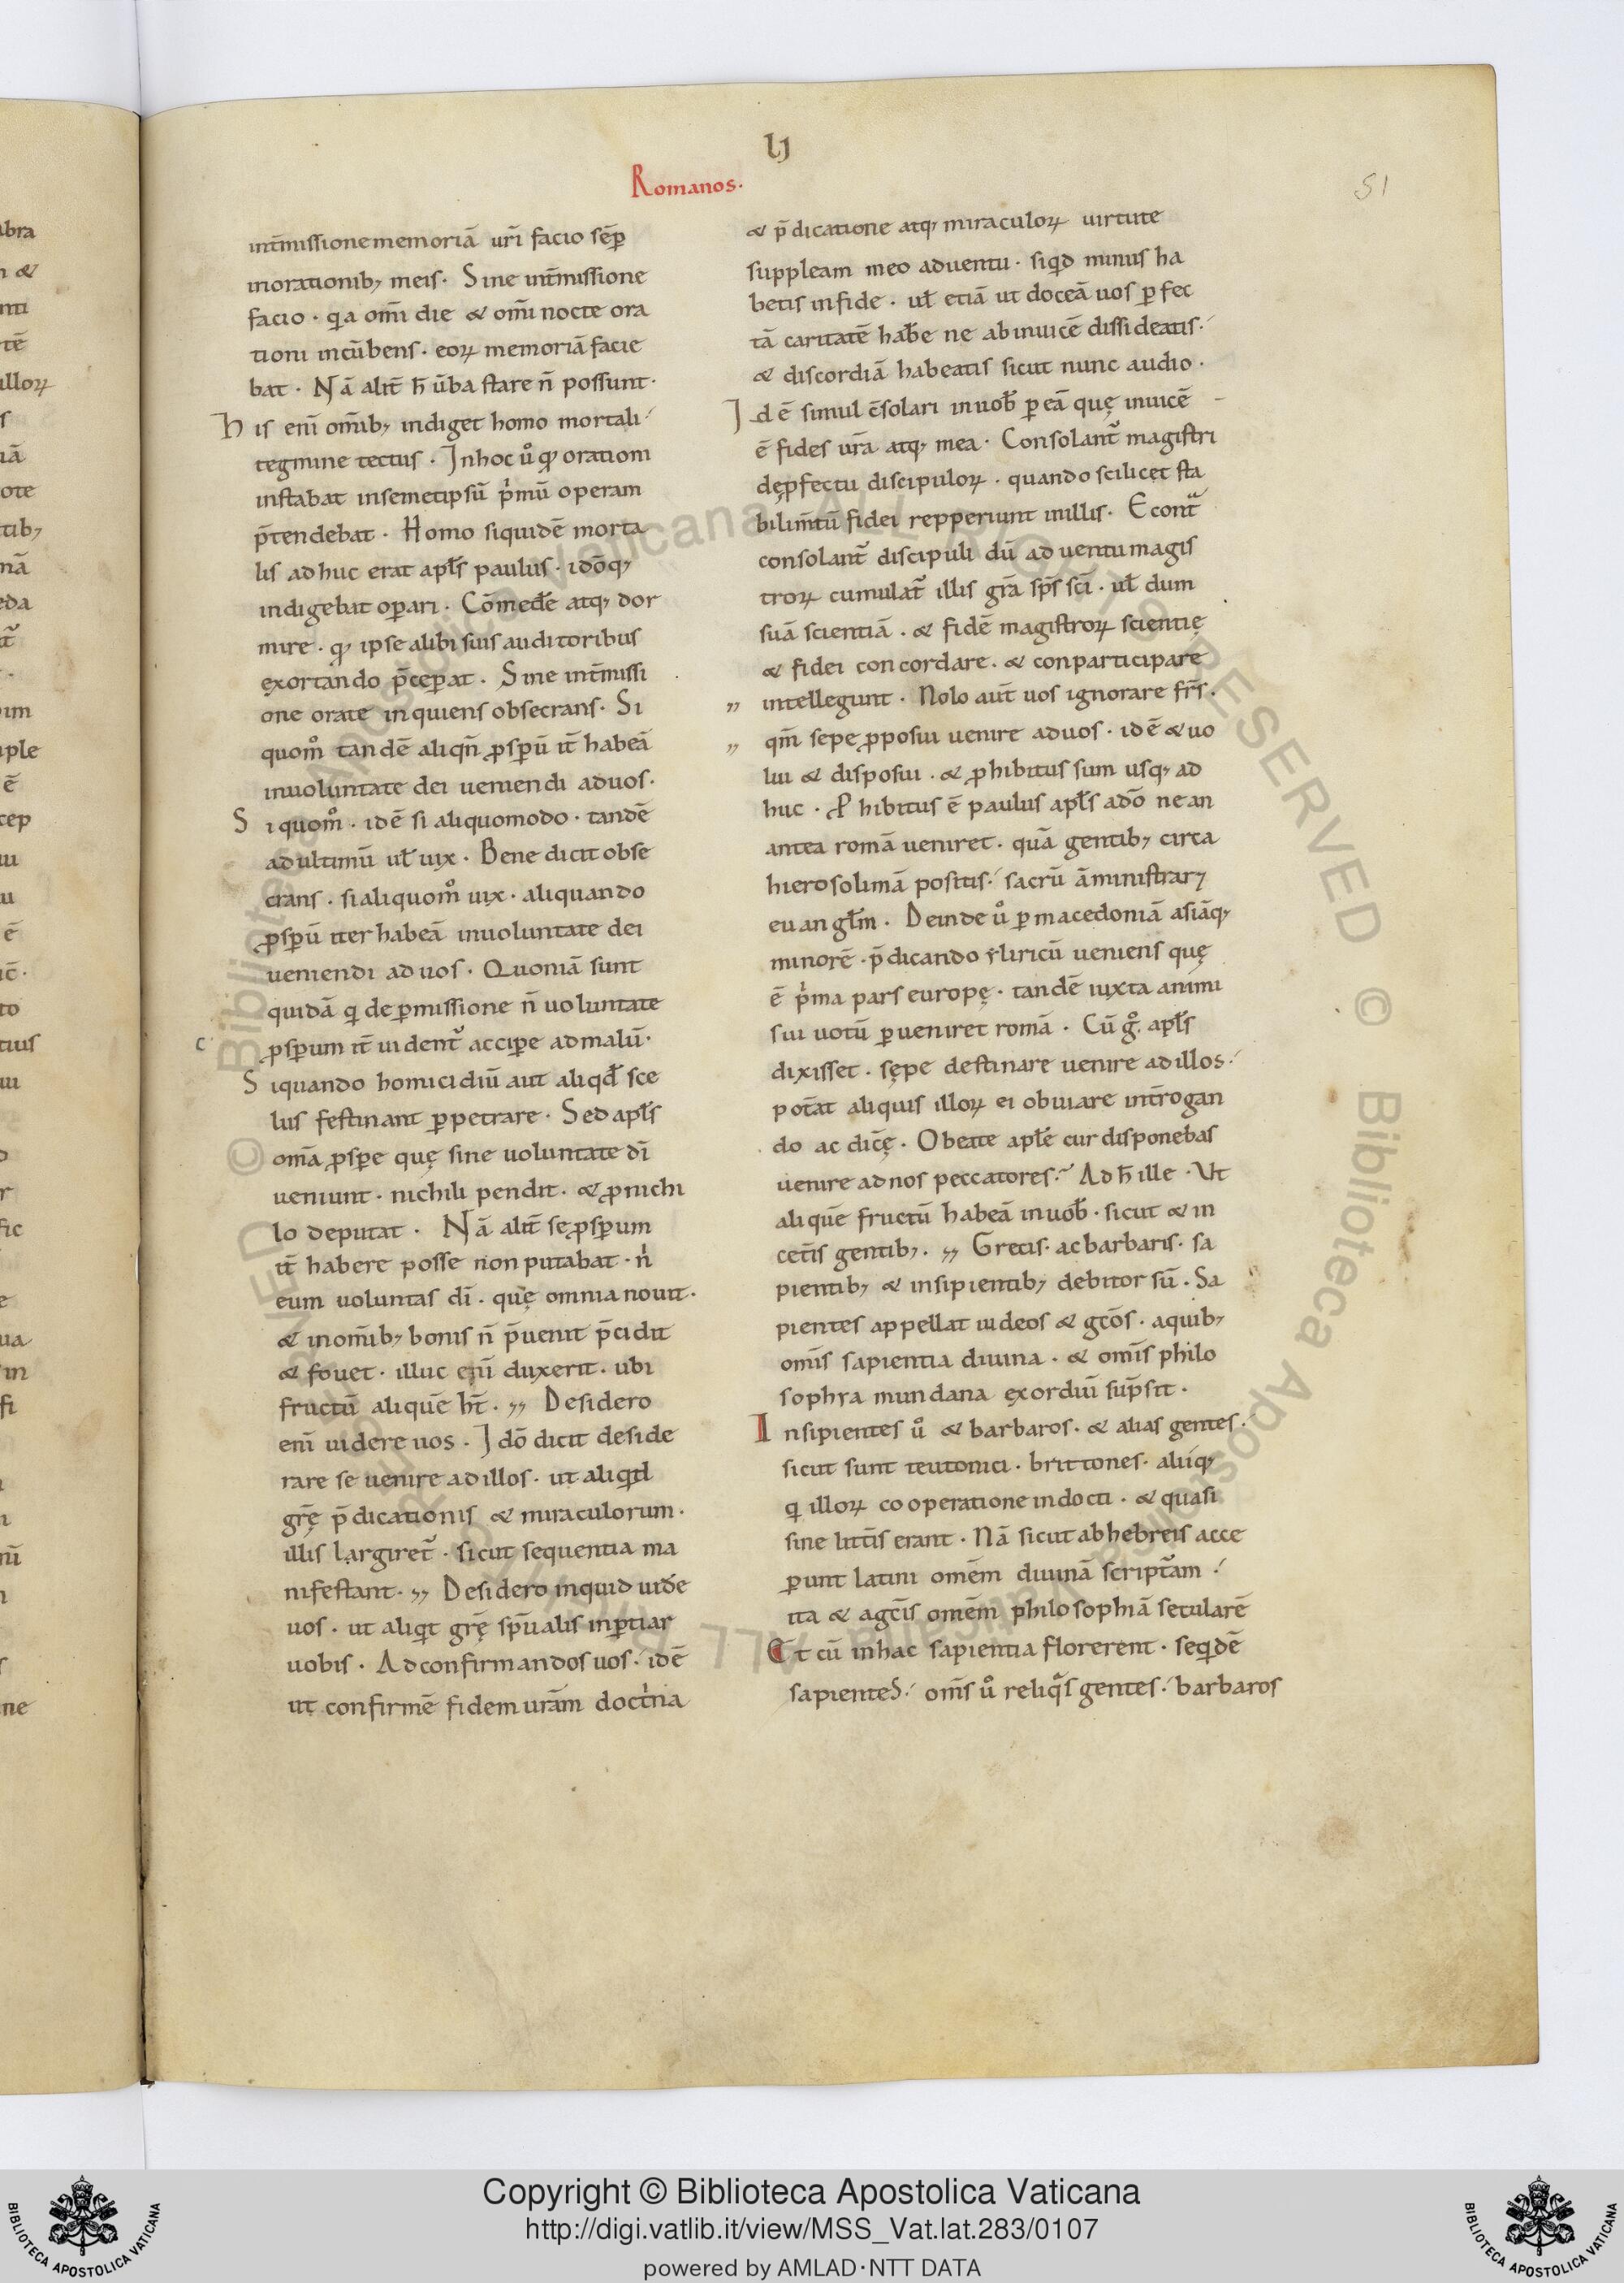 lı
Romanos.
51
int̄missionememoriā ur̄i facio sēp
inorationib; meis. Sine int̄missione
facio. qa om̄i die & om̄i nocte ora
tioni incūbens. eoꝝ memoriā facie
bat. Nā alit̄ h̄ ūba stare n̄ possunt.
His eni om̄ib; indiget homo mortali
tegmine tectus. Inhoc uº qꝫ orationi
instabat insemetipsū pͥmū operam
p̄tendebat. Homo siquidē morta
lis adhuc erat apl̄s paulus. idōqꝫ
indigebat oꝑari. Cōmedꝉe atqꝫ dor
mire. qꝫ ipse alibi suis auditoribus
ęxortando p̄ceꝑat. Sine int̄missi
one orate inquiens obsecrans. Si
quomº tandē aliqn̄ ꝓsꝑū it̄ habeā
inuoluntate dei ueniendi aduos.
Siquomº. idē si aliquomodo. tandē
adultimū ul̄ uix. Bene dicit obse
crans. sialiquomº uix. aliquando
ꝓsꝑū iter habeā inuoluntate dei
ueniendi aduos. Quoniā sunt
quidā q de ꝑmissione n̄ uoluntate
c ꝓsꝑum it̄ uident᷑ acciꝑe admalū.
Siquando homicidiū aut aliqd̄ sce
lus festinant ꝑpetrare. Sed apl̄s
om̄a ꝓsꝑe quę sine uoluntate dī
ueniunt. nichili pendit. & ꝓnichi
lo deputat. Nā alit̄ se ꝓsꝑum
it̄ habere posse non putabat. nͥ
eum uoluntas dī. quę omnia nouit.
& inom̄ib; bonis n̄ p̄uenit p̄cidit
& fouet. illuc enī duxerit. ubi
fructū aliquē ht̄. ,, Desidero
enī uidere uos. Idō dicit deside
rare se uenire adillos. ut aliqd
gr̄ę p̄dicationis & miraculorum.
illis largiret᷑. sicut sequentia ma
nifestant. ,, Desidero inquid uidꝉe
uos. ut aliqit gr̄ę sp̄ualis inꝑtiar
uobis. Adconfirmandos uos. idē
ut confirmē fidem ur̄am doctͥna
& p̄dicatione atqꝫ miraculoꝝ uirtute
suppleam meo aduentu. siqd minus ha
betis infide. ul̄ etiā ut doceā uos ꝑfec
tā caritatē habꝉe ne abinuicē dissideatis.
& discordiā habeatis sicut nunc audio.
Idē simul c̄solari inuob̄ ꝑ eā quę inuicē
ē fides ur̄a atqꝫ mea. Consolant᷑ magistri
dęꝑfectu discipuloꝝ. quando scilicet sta
bilim̄tū fidei repperiunt inillis. Econtͣ
consolant᷑ discipuli dū aduentu magis
troꝝ cumulat᷑ illis gr̄a sp̄s sc̄i. ul̄ dum
suā scientiā. & fidē magistroꝝ scientię
& fidei concordare. & conparticipare
,, intellegunt. Nolo aut̄ uos ignorare fr̄s.
,, qm̄ sepe ꝓposui uenire aduos. idē & uo
lui & disposui. & ꝓhibitus sum usqꝫ ad
huc. Ꝓhibitus ē paulus apl̄s adō nean
antea romā ueniret. quā gentib; circa
hierosolimā positis. sacrū āministrar;
euangl̄m. Deinde uº ꝑ macedoniā asiāqꝫ
minorē. p̄dicando yliricū ueniens quę
ē pͥma pars europę. tandē iuxta animi
sui uotū ꝑueniret romā. Cū gº apl̄s
dixisset. sępe destinare uenire adillos.
pot̄at aliquis illoꝝ ei obuiare int̄rogan
do ac dic̄ę. Obeate apl̄e cur disponebas
uenire adnos peccatores. Adh̄ ille. Ut
aliquē fructū habeā inuob̄. sicut & in
cet̄is gentib;. ,, Grecis. ac barbaris. sa
pientib; & insipientib; debitor sū. Sa
pientes appellat iudeos & gc̄os. aquib;
om̄is sapientia diuina. & om̄is philo
sophya mundana ęxordiū sūpsit.
Insipientes uº & barbaros. & alias gentes.
sicut sunt teutonici. brittones. aliiqꝫ
q illoꝝ cooperatione indocti. & quasi
sine litt̄is erant. Nā sicut abhebreis acce
ꝑunt latini omēm diuinā script᷑am.
ita & agc̄is omēm philosophiā secularē
Et cū inhac sapientia florerent. seqdē
sapientes. om̄s uº reliqͣs gentes. barbaros
abra
n &
nti
tē
illoꝝ
s
iā
ote
tib;
nā
eda
im
mple
ē
cep
ui
u
ē
to
tius
ui
r
fic
e
ua
in
fi
ne
Copyright © Biblioteca Apostolica Vaticana
http://digi.vatlib.it/view/MSS_Vat.lat.283/0107
powered by AMLAD·NTT DATA
BIBLIOTECA APOSTOLICA VATICANA
BIBLIOTECA APOSTOLICA VATICANA